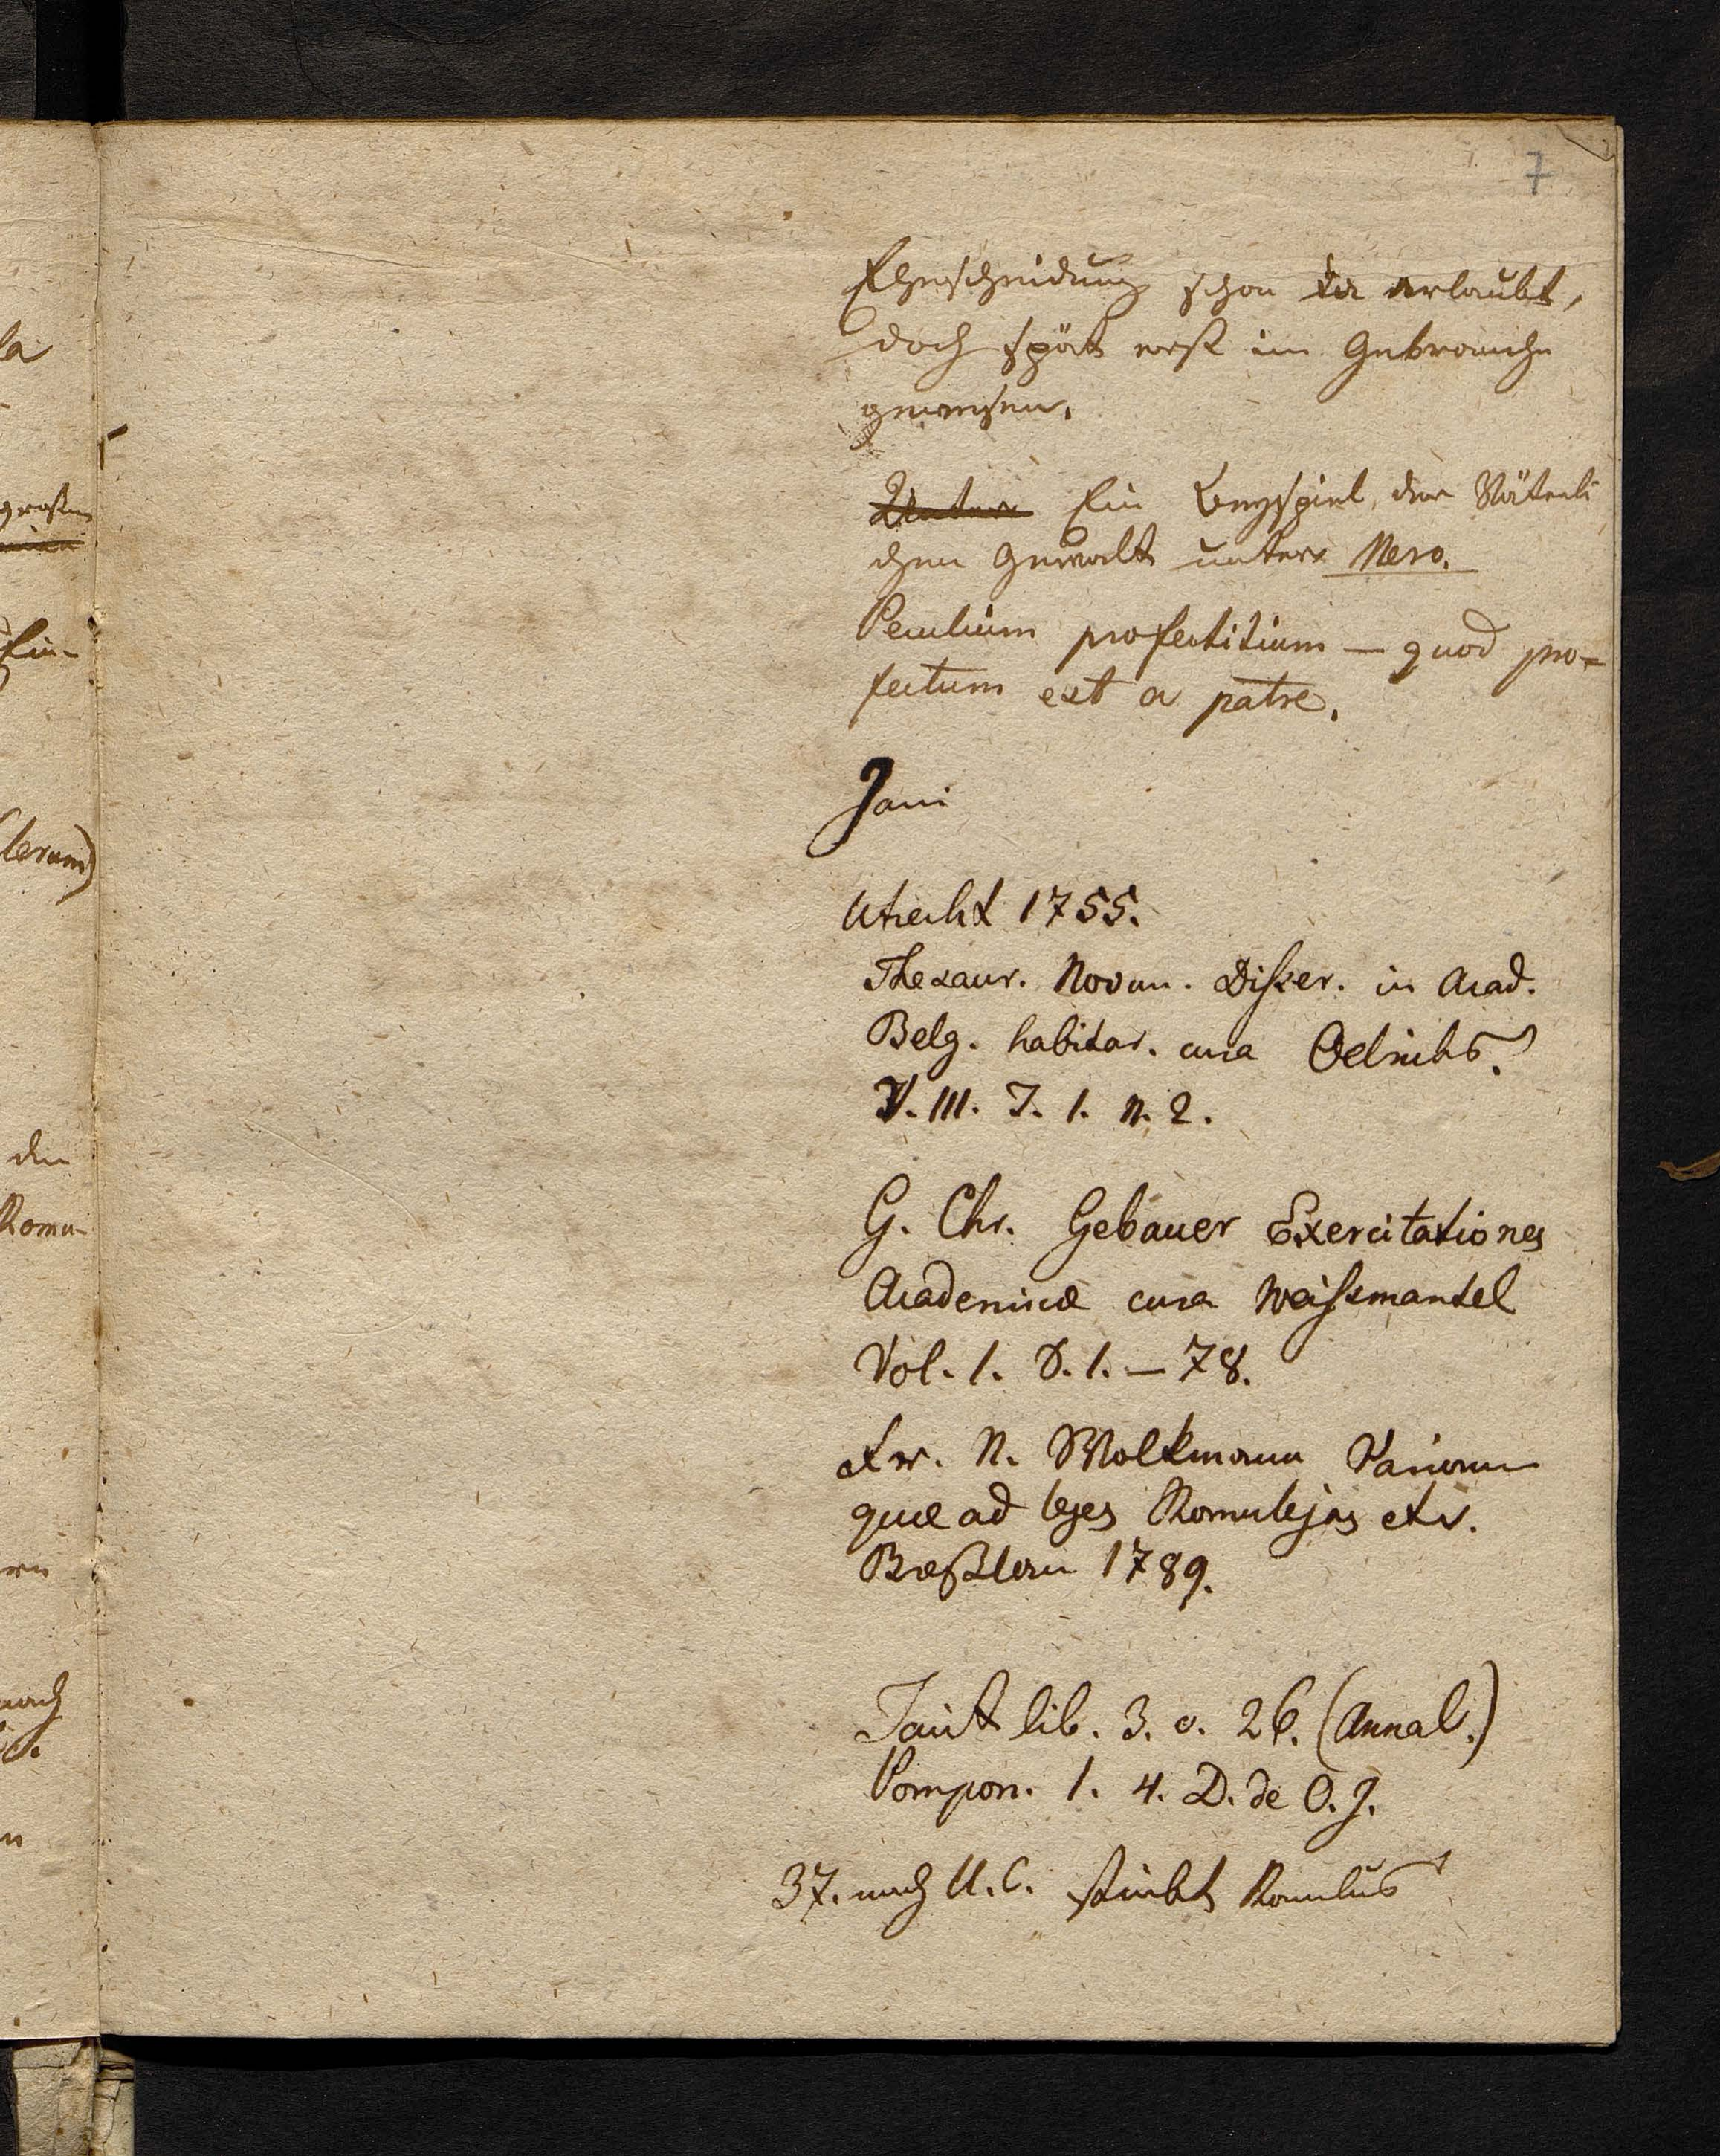 7
Ehescheidung schon da erlaubt,
doch spät erst im Gebrauche
gewesen.
Unter Ein Beyspiel der Väterli
chen Gewalt unter Nero.
Peculium profectitium — quod pro=
fectum est a patre.
Jani
Utrecht 1755.
Thesaur. Novum. Disser. in Acad.
Belg. habitar. cura Oelrichs.
V. III. T. 1. n. 2.
G. Chr. Gebauer Exercitationes
Academicæ cura Weissmantel
Vol. 1. S. 1. — 78.
Fr. N. Volkmann Variorum
quæ ad leges Romulejas etc.
1789.
Tacit lib. 3. c. 26. (Annal.)
Pompon. l. 4. D. de O. J.
37. nach U. C. stirbt Romulus
la
großen
Ein-
lerum)
den
Romu-
nach